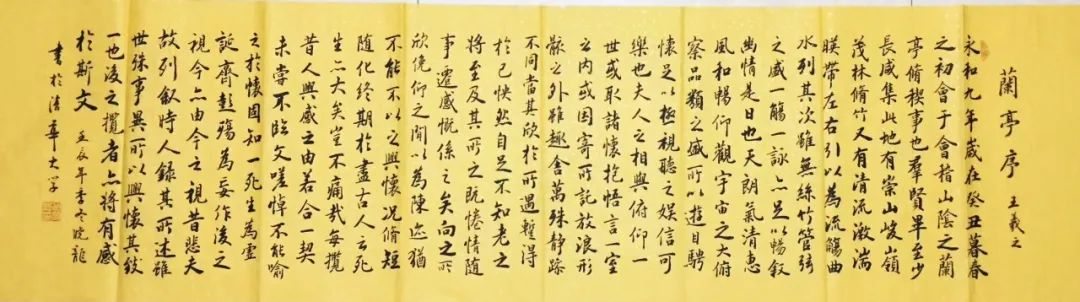 蘭亭序 王羲之
永和九年歲在癸丑暮春
之初會于會稽山陰之蘭
亭脩稧事也羣賢畢至少
長咸集此地有崇山峻嶺
茂林脩竹又有清流激湍
暎帶左右引以為流觴曲
水列其次雖無絲竹管弦
之盛一觴一詠亦足以暢叙
幽情是日也天朗氣清惠
風和暢仰觀宇宙之大俯
察品類之盛所以遊目騁
懷足以極視聽之娛信可
樂也夫人之相與俯仰一
世或取諸懷抱悟言一室
之内或因寄所託放浪形
骸之外雖趣舍萬殊静躁
不同當其欣於所遇暫得
於己怏然自足不知老之
將至及其所之既惓情隨
事遷感慨係之矣向之所
欣俛仰之間以為陳迹猶
不能不以之興懷況脩短
隨化終期於盡古人云死
生亦大矣豈不痛哉每攬
昔人興感之由若合一契
未嘗不臨文嗟悼不能喻
之於懷固知一死生為虛
誕齊彭殤為妄作後之
視今亦由今之視昔悲夫
故列叙時人錄其所述雖
世殊事異所以興懷其致
一也後之攬者亦將有感
於斯文 壬辰年季冬晓龍
書於清華大学